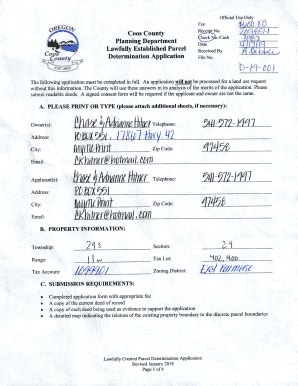 Official Use Only
OREGON
Coos County
Coos County
Planning Department
Lawfully Established Parcel
Determination Application
Fee
Receipt No.
Check No./Cash
Date
Received By
File No.
D-19-001
The following application must be completed in full. An application will not be processed for a land use request
without this information. The County will use these answers in its analysis of the merits of the application. Please
submit readable deeds. A signed consent form will be required if the applicant and owner are not the same.
A. PLEASE PRINT OR TYPE (please attach additional sheets, if necessary):
Owner(s): Chase & Adrianne Hitner Telephone: 541-572-1997
Address: PO BOX 551 17867 Hwy. 42
City: Myrtle Point Zip Code: 97458
Email: akhitner@hotmail.com
Applicant(s): Chase & Adrianne Hitner Telephone: 541-572-1997
Address: PO BOX 551
City: Myrtle Point Zip Code: 97458
Email: akhitner@hotmail.com
B. PROPERTY INFORMATION:
Township: 29s Section: 29
Range: 11w Tax Lot: 402, 400
Tax Account: 1099901 Zoning District:
C. SUBMISSION REQUIREMENTS:
• Completed application form with appropriate fee
• A copy of the current deed of record
• A copy of each deed being used as evidence to support the application
• A detailed map indicating the relation of the existing property boundary to the discrete parcel boundaries
Lawfully Created Parcel Determination Application
Revised January 2018
Page 1 of 4